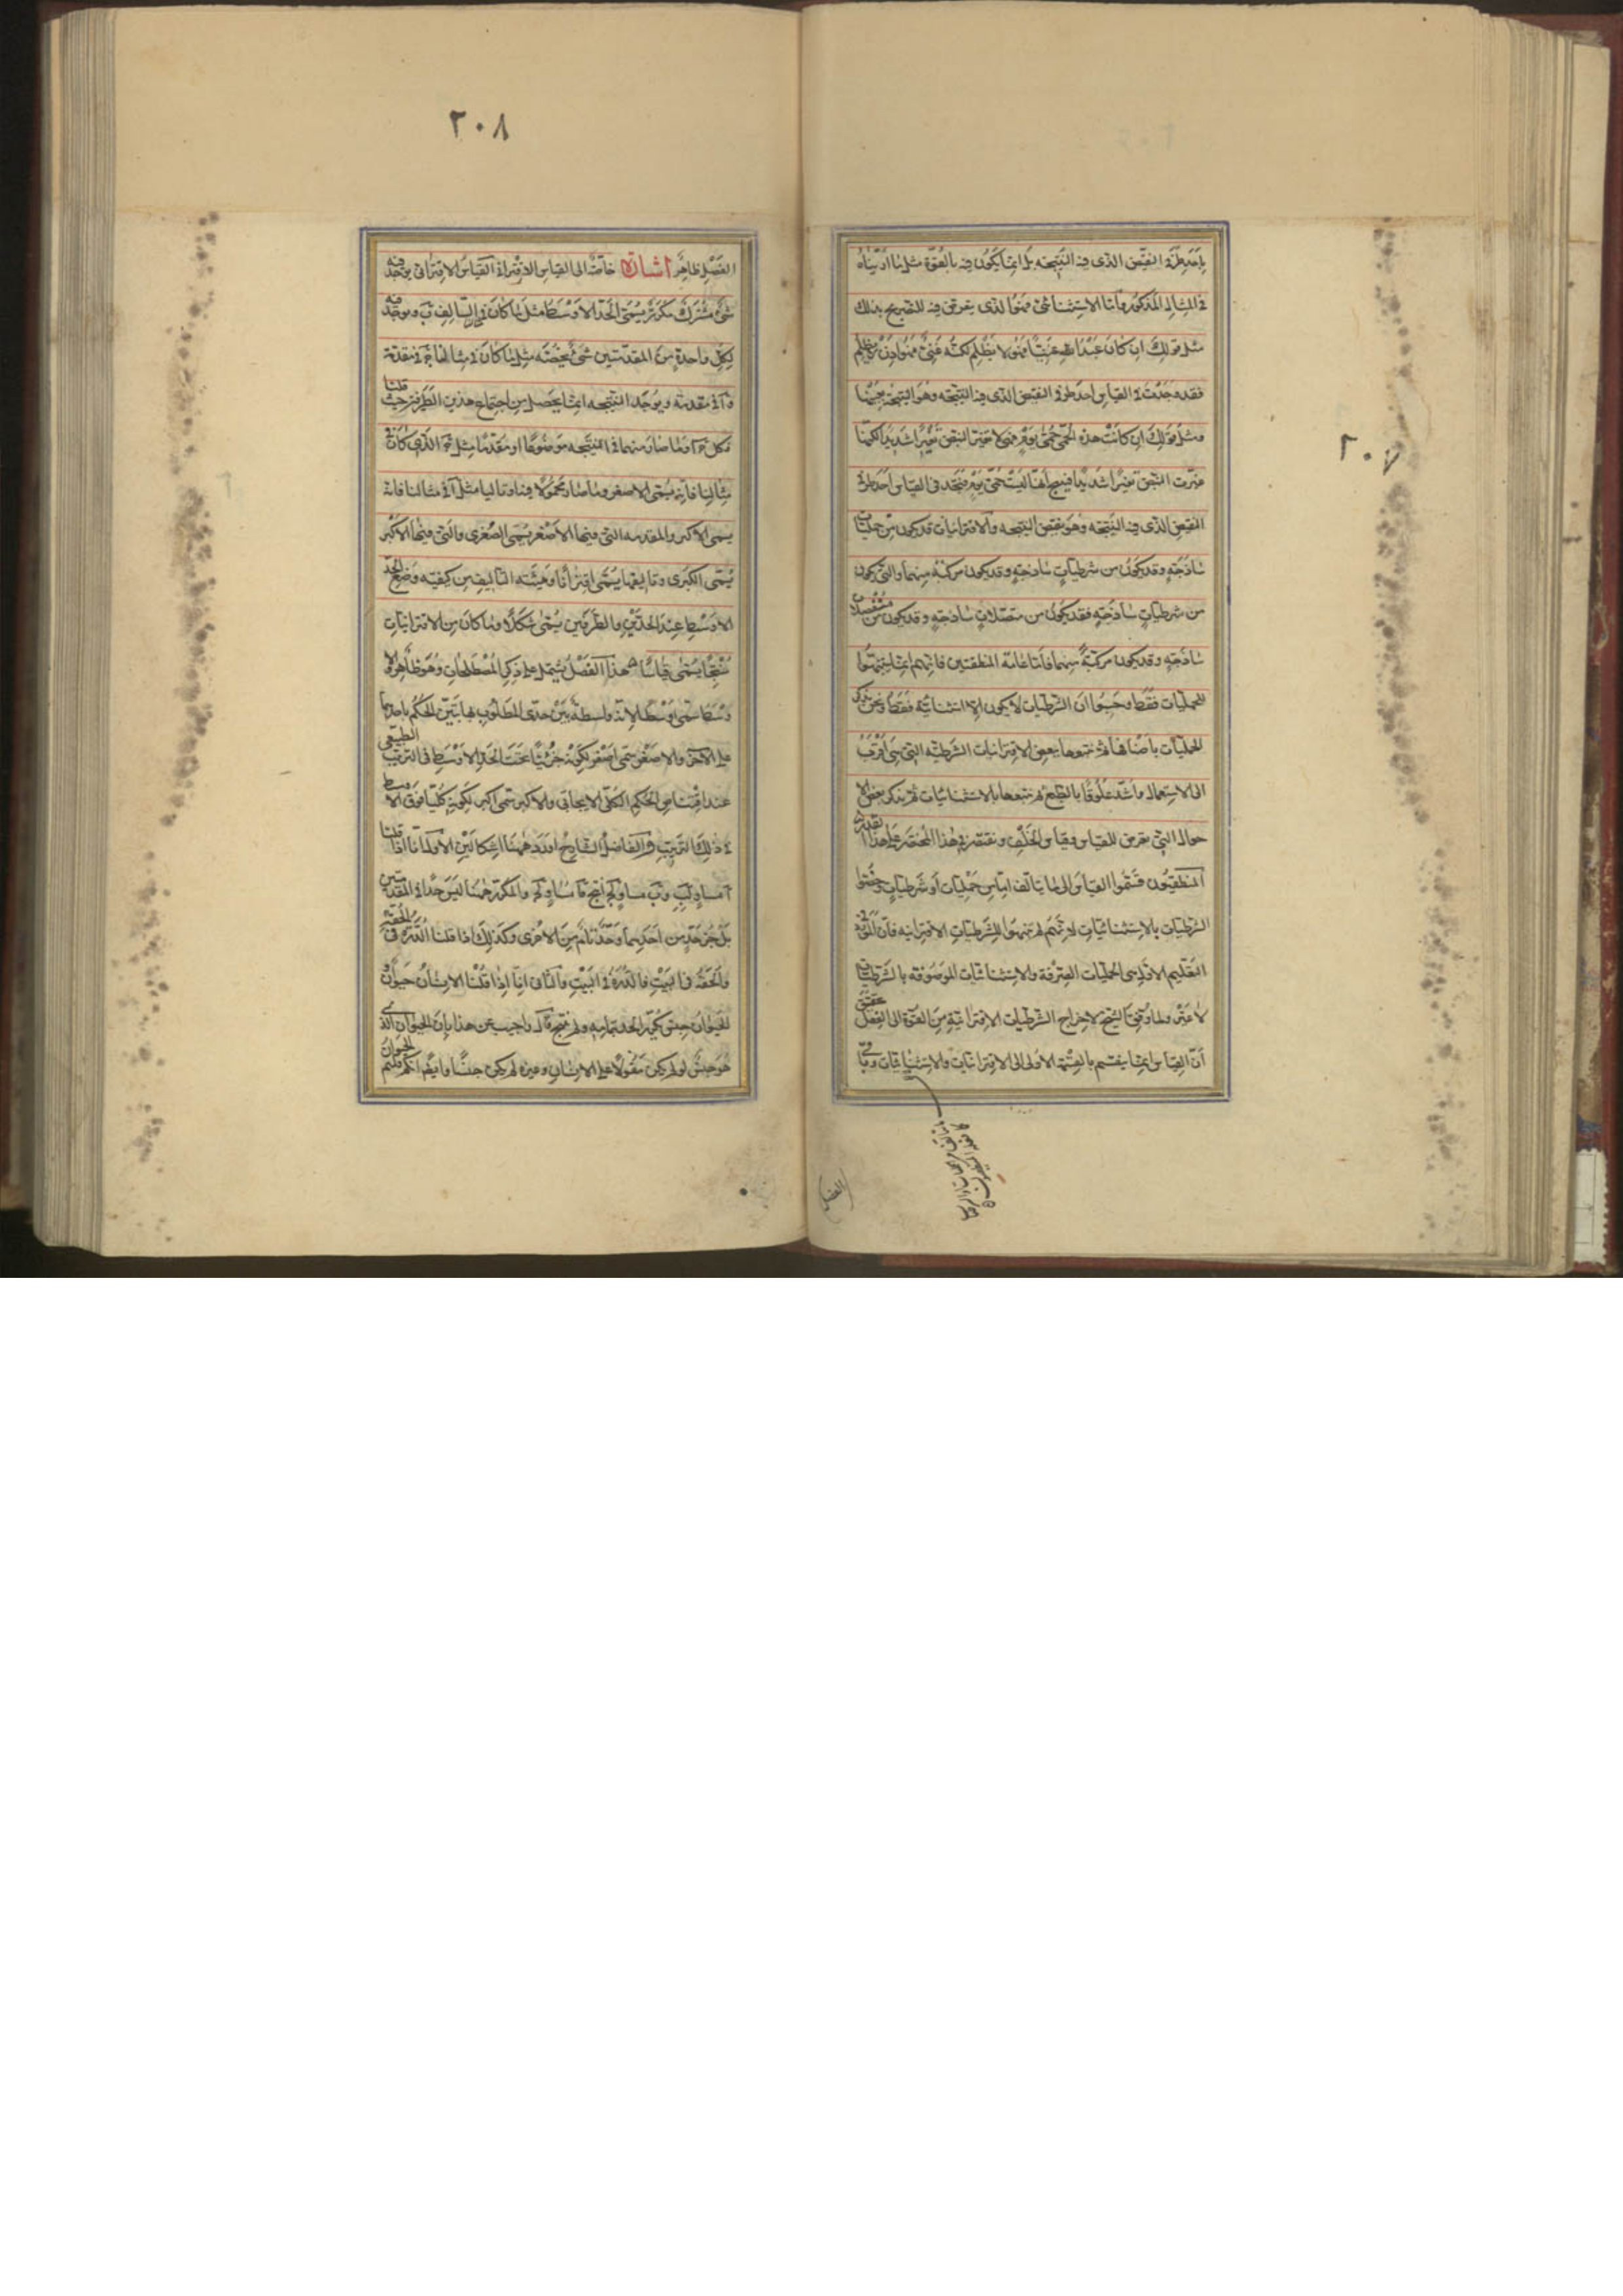 ٢٠٧
باحد طرفى النقيض الذى فيه النتيجه بل انما يكون فيه بالقوة مثل ما اوردناه
فى المثال المذكور واما الاستثنائى فهو الذى يتعرض فيه للتصريح بذلك
مثل قولك ان كان عبد الله غنيا فهو لا يظلم لكنه غنى فهو اذن لا يظلم
فقد وجدت فى القياس احد طرفى النقيض الذى فيه النتيجه وهو النتيجة بعينها
ومثل قولك ان كانت هذه الحمى حمى يوم فهى لا تغير النبض تغيرا شديدا لكنها
غيرت النبض تغيرا شديدا فينتج انها ليست حمى يوم فتجد فى القياس احد طرفى
النقيض الذى فيه النتيجه وهو نقيض النتيجه والاقترانيات قد يكون من حمليات
ساذجة وقد يكون من شرطيات ساذجة وقد يكون مركبة منهما والتى يكون
من شرطيات ساذجة فقد يكون من متصلات ساذجة وقد يكون من منفصلات
ساذجة وقد يكون مركبة منهما فاما عامة المنطقيين فانهم انما تنبهوا
للحمليات فقط وحسبوا ان الشرطيات لا يكون الا استثنائية فقط ونحن نذكر
الحمليات باصنافها ثم نتبعها ببعض الاقترانيات الشرطيه التى هى اقرب
الى الاستعمال واشد علوقا بالطبع ثم نتبعها بالاستثنائيات ثم نذكر بعض الا
حوال التى تعرض للقياس وقياس الخلف ونقتصر فى هذا المختصر على هذا القدر
المنطقيون قسموا القياس الى ما يتالف اما من حمليات او شرطيات وخصوا
الشرطيات بالاستثنائيات لانهم لم يتنبهوا للشرطيات الاقترانيه فان المورد فى
التعليم الاول هى الحمليات الصرفة والاستثنائيات الموصوفه بالشرطيات
لا غير ولما وفق الشيخ لاخراج الشرطيات الاقترانية من القوة الى الفعل حقق
ان القياس انما ينقسم بالقسمة الاولى الى الاقترانيات والاستثنائيات وباقى
الفصل
٢٠٨
الفصل ظاهر اشارة خاصة الى القياس الاقترانى القياس الاقترانى يوجد فيه
شىء مشترك مكرر يسمى الحد الاوسط مثل ما كان فى المثال السالف ب ويوجد فيه
لكل واحدة من المقدمتين شىء يخصه مثل ما كان فى مثالنا ج فى مقدمة
و ا فى مقدمة ويوجد النتيجه انما يحصل من اجتماع هذين الطرفين حيث قلنا
فكل ج ا وما صار منهما فى النتيجه موضوعا او مقدما مثل ج الذى كان فى
مثالنا فانه يسمى الاصغر وما صار محمولا فيها او تاليا مثل ا فى مثالنا فانه
يسمى الاكبر والمقدمه التى فيها الاصغر يسمى الصغرى والتى فيها الاكبر
يسمى الكبرى وتاليفهما يسمى اقترانا وهيئة التاليف من كيفيه وضع الحد
الاوسط عند الحدين الطرفين يسمى شكلا وما كان من الاقترانيات
منتجا يسمى قياسا هذا الفصل يشتمل على ذكر المصطلحات وهو ظاهر والا
وسط سمى اوسط لانه واسطة بين حدى المطلوب بها يتبين الحكم باحدهما
على الاخر والاصغر سمى اصغر لكونه جزئيا تحت الحد الاوسط فى الترتيب الطبيعى
عند اقتناص الحكم الكلى الايجابى والاكبر سمى اكبر لكونه كليا فوق الاوسط
فى ذلك الترتيب والفاضل الشارح اورد ههنا اشكالين الاول انا اذا قلنا
ا مساو لب وب مساو لج انتج فا مساو لج والمكرر ههنا ليس حدا فى المقدمتين
بل جزء حد من احديهما وحد تام من الاخرى وكذلك اذا قلنا الدرة فى الحقة
والحقة فى البيت فالدرة فى البيت والثانى انا اذا قلنا الانسان حيوان
الحيوان جنس تكرر الحد بتمامه ولم ينتج قال واجيب عن هذا بان الحيوان الذى
هو جنس لو لم يكن مقولا على الانسان وغيره لم يكن جنسا وايضا انكم قلتم الحيوان